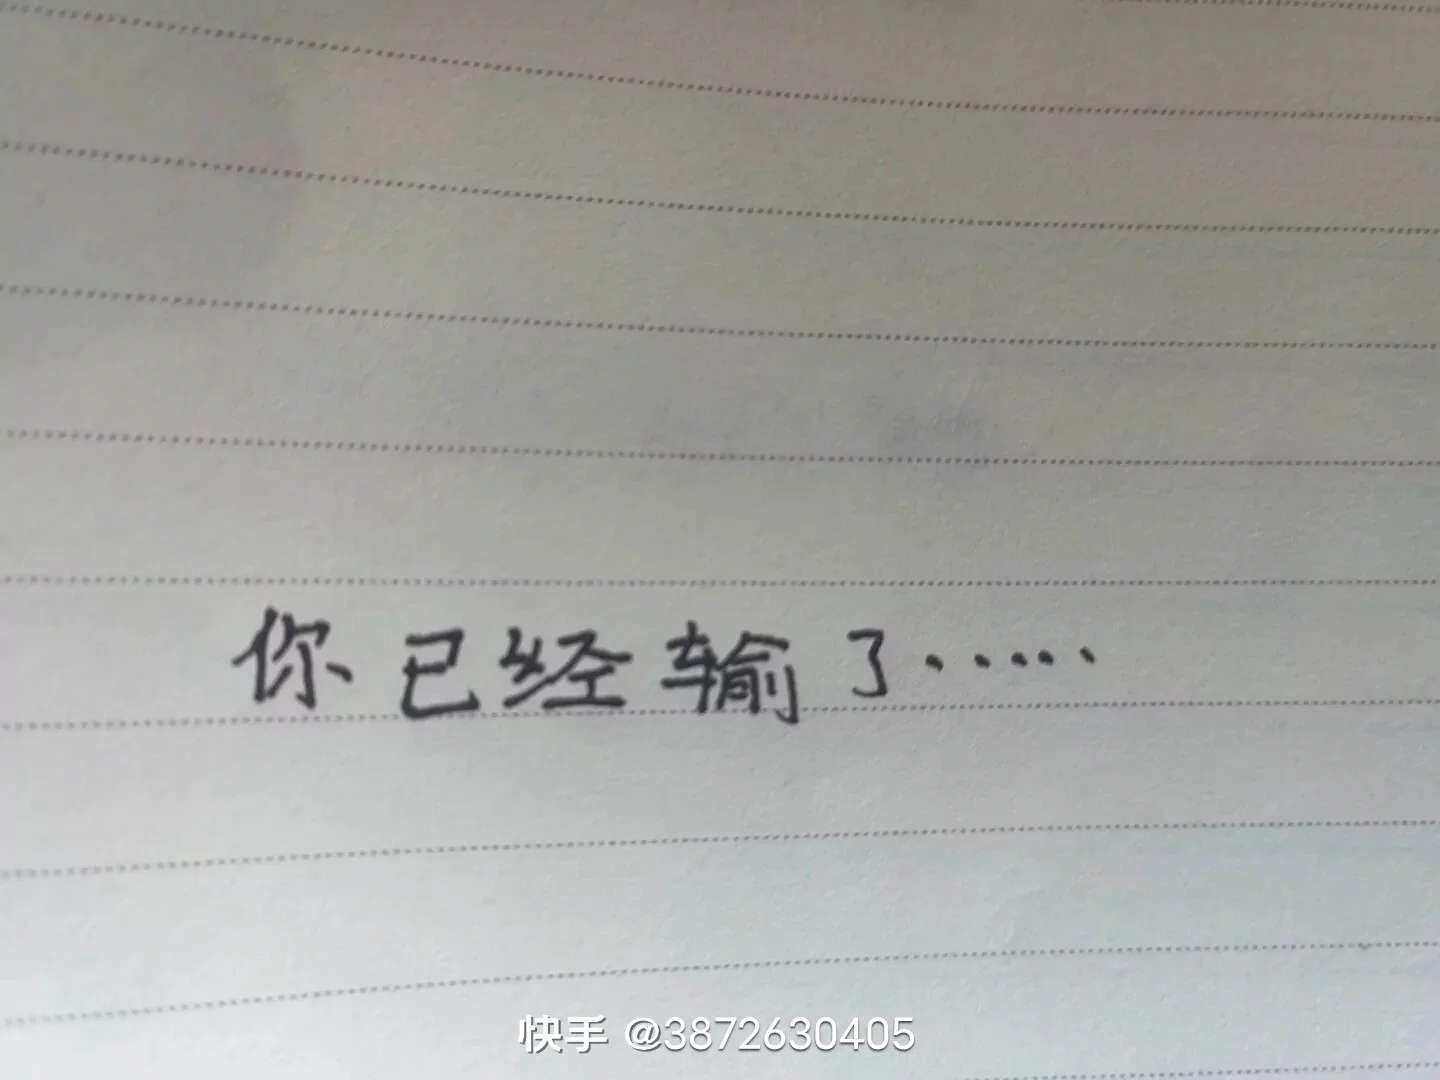 你已经输了·····
快手 @3872630405